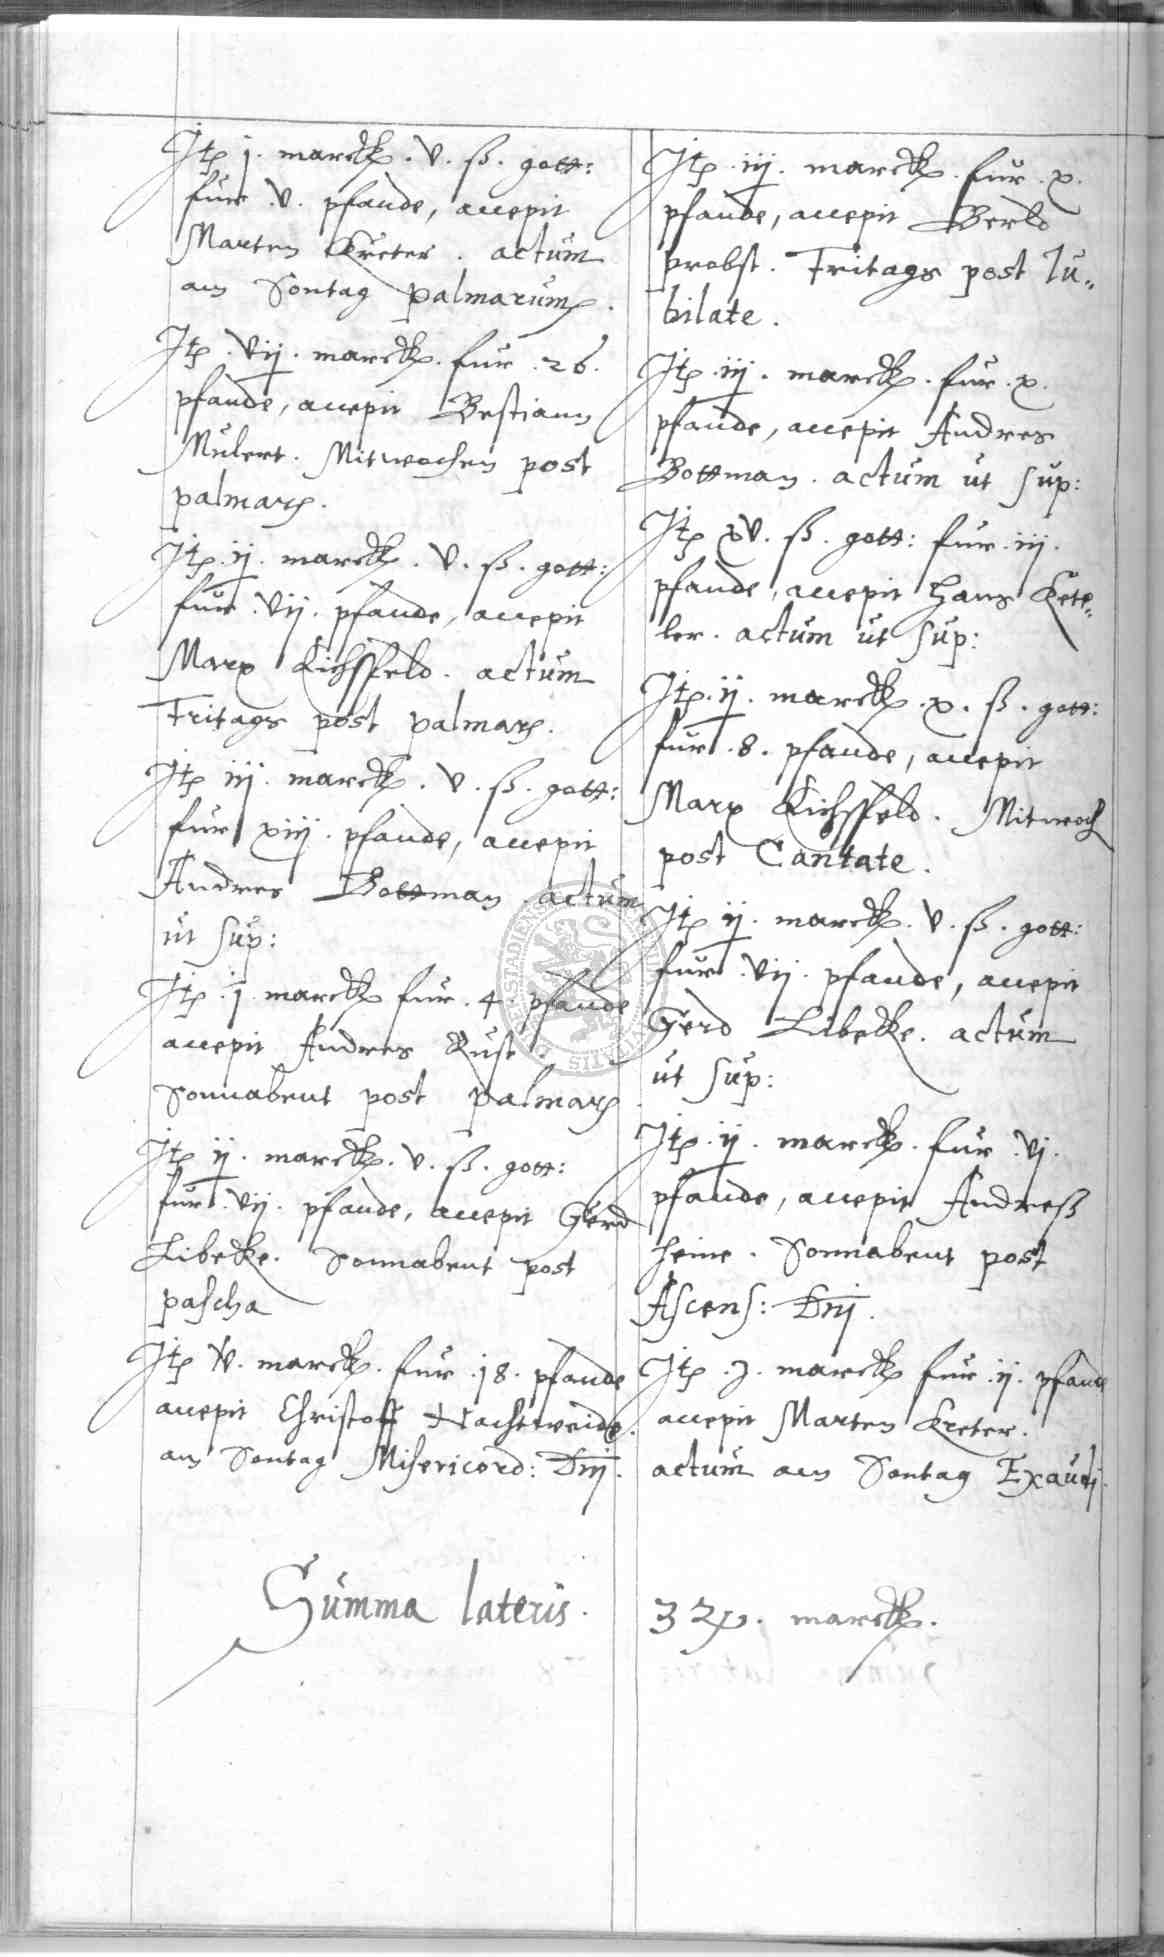 Itꝫ j. marck. v. ß. gott:
fur .v. pfande, accepit
Marten Kreter. actum
am Sontag palmarum.
Itꝫ .vij. marck. fur .26.
pfande, accepit Bestiann
Mulert. Mitwochen post
palmarꝫ.
Itꝫ .ij. marck. v. ß. gott:
fur .vij. pfande, accepit
Marx Eichsfeld. actum
Fritags post palmarꝫ.
Itꝫ iij. marck. v. ß. gott:
fur xiij. pfande, accepit
Andres Bottman. actum
ut sup:
Itꝫ .j. marck fur .4. pfande
accepit Andres Rust
Sonnabent post palmarꝫ
Itꝫ ij. marck. v. ß. gott:
fur .vij. pfande, accepit Gerd
Libecke. Sonnabent post
pascha
Itꝫ v. marck. fur .18. pfande
accepit Christoff Nachtweide.
am Sontag Misericord: Dnj.
Itꝫ .iij. marck. fur .x.
pfande, accepit Berld
probst. Fritags post Ju„
bilate.
Itꝫ .iij. marck. fur .x.
pfande, accepit Andres
Bottman. actum ut sup:
Itꝫ xv. ß. gott: fur .iij.
pfande, accepit Hans Kete„
ler. actum ut sup:
Itꝫ .ij. marck. x. ß. gott:
fur .8. pfande, accepit
Marx Eichsfeld. Mitwoch
post Cantate.
Itꝫ ij. marck. v. ß. gott:
fur .vij. pfande, accepit
Gerd Libecke. actum
ut sup:
Itꝫ .ij. marck. fur .vj.
pfande, accepit Andreß
Heine. Sonnabent post
Ascens: Dnj.
Itꝫ .j. marck fur .ij. pfande
accepit Marten Kreter.
actum am Sontag Exaudj.
Summa lateris. marck.